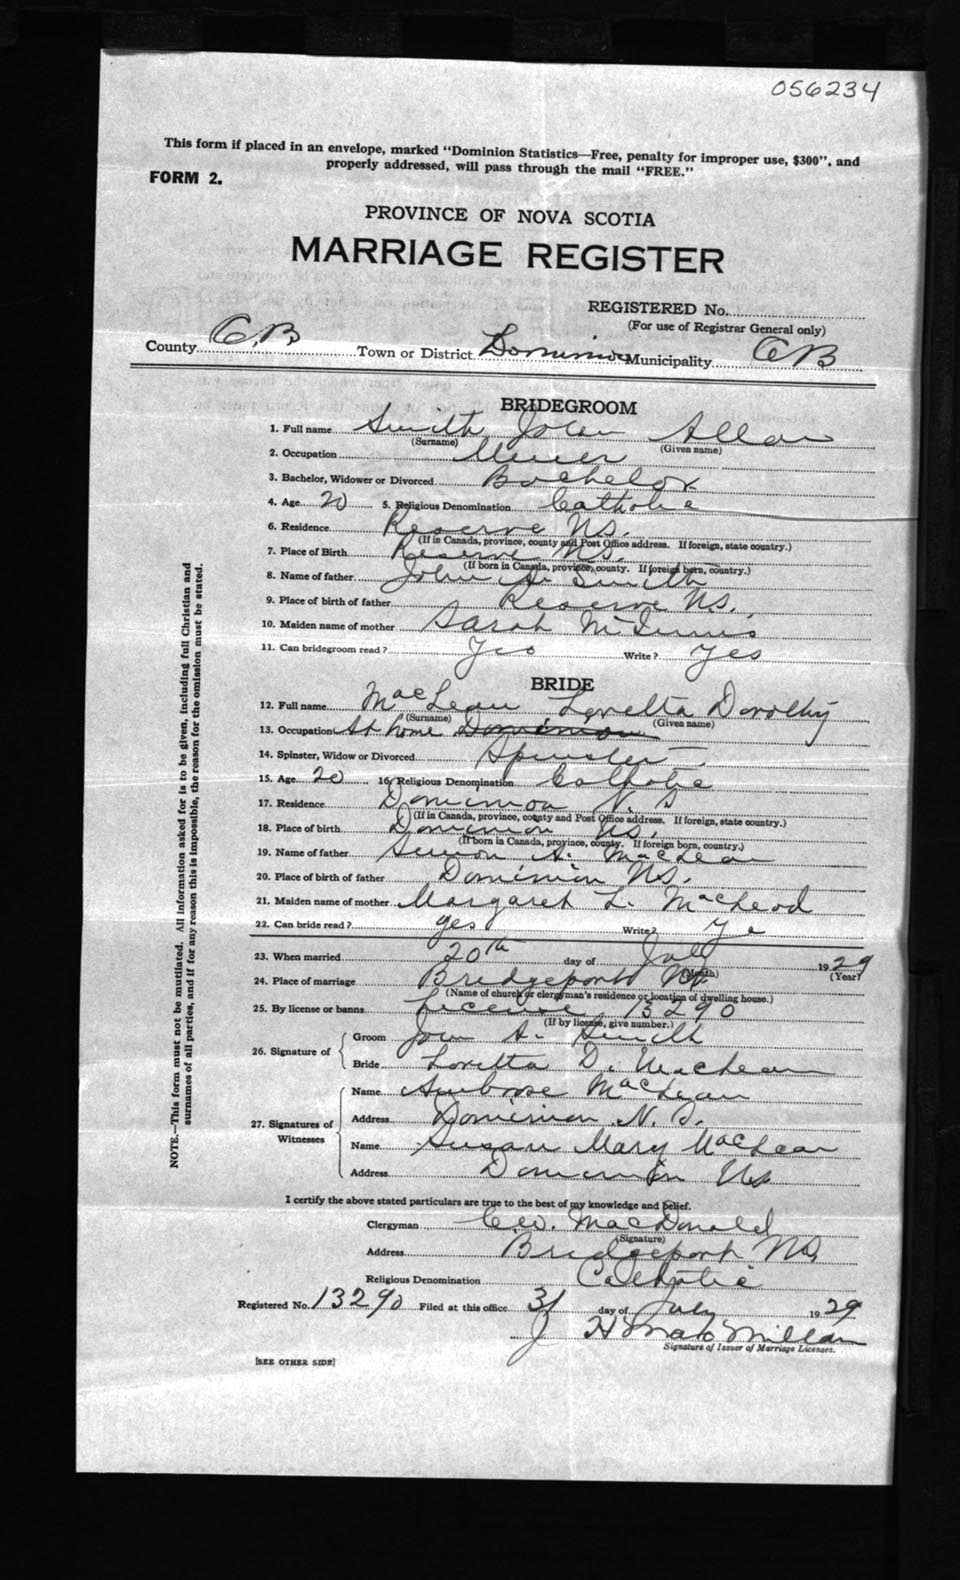 056234
This form if placed in an envelope, marked "Dominion Statistics—Free, penalty for improper use, $300", and
properly addressed, will pass through the mail "FREE."
FORM 2.
PROVINCE OF NOVA SCOTIA
MARRIAGE REGISTER
REGISTERED No.
(For use of Registrar General only)
County C.B. Town or District Dominion Municipality CB
BRIDEGROOM
1. Full name Smith John Allan
(Surname) (Given name)
2. Occupation Miner
3. Bachelor, Widower or Divorced Bachelor
4. Age 20 5. Religious Denomination Catholic
6. Residence Reserve N.S.
(If in Canada, province, county and Post Office address. If foreign, state country.)
7. Place of Birth Reserve N.S.
(If born in Canada, province, county. If foreign born, country.)
8. Name of father John A. Smith
9. Place of birth of father Reserve N.S.
10. Maiden name of mother Sarah McInnis
11. Can bridegroom read? Yes Write? Yes
BRIDE
12. Full name MacLean Loretta Dorothy
(Surname) (Given name)
13. Occupation At home Dominion
14. Spinster, Widow or Divorced Spinster
15. Age 20 16. Religious Denomination Catholic
17. Residence Dominion N.S
(If in Canada, province, county and Post Office address. If foreign, state country.)
18. Place of birth Dominion N.S.
(If born in Canada, province, county. If foreign born, country.)
19. Name of father Simon A. MacLean
20. Place of birth of father Dominion N.S.
21. Maiden name of mother Margaret L. MacLeod
22. Can bride read? Yes Write? Ye
23. When married 20th day of July 1929
(Month) (Year)
24. Place of marriage Bridgeport NS
(Name of church or clergyman's residence or location of dwelling house.)
25. By license or banns License 13290
(If by license, give number.)
26. Signature of
Groom John A. Smith
Bride Loretta D. MacLean
27. Signatures of Witnesses
Name Ambrose MacLean
Address Dominion N.S.
Name Susan Mary MacLean
Address Dominion N.S.
I certify the above stated particulars are true to the best of my knowledge and belief.
Clergyman C.W. MacDonald
(Signature)
Address Bridgeport NS,
Religious Denomination Catholic
Registered No. 13290 Filed at this office 31 day of July 1929
J H MacMillan
Signature of Issuer of Marriage Licenses.
[SEE OTHER SIDE]
NOTE.—This form must not be mutilated. All information asked for is to be given, including full Christian and
surnames of all parties, and if for any reason this is impossible, the reason for the omission must be stated.